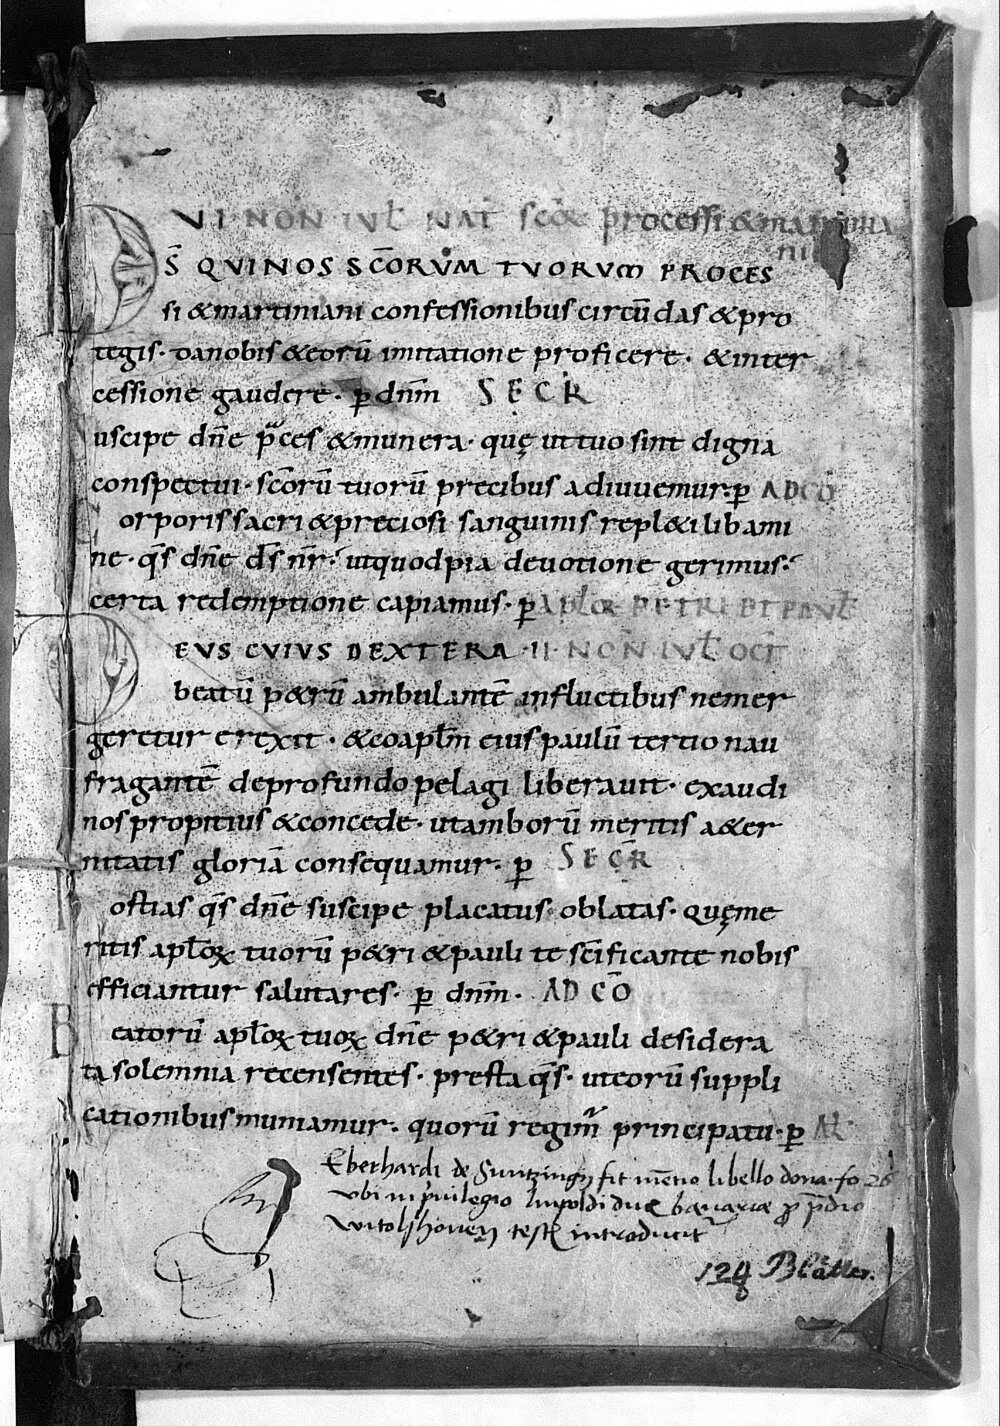 VI NON IVƚ NAT scōꝝ processi & martinia
ni
D̄S QVINOS SC̄ORVM TVORVM PROCES
si & martiniani confessionibus circū das & pro
tegis · da nobis & eorū imitatione proficere · & inter
cessione gaudere · ꝑ dnm̄ SECR̄
uscipe dn̄e p̄ces & munera · quę ut tuo sint digna
conspectui · sc̄orū tuorū precibus adiuuemur · ꝑ AD CŌ
orporis sacri & preciosi sanguinis repl&i libami
ne · q̄s dn̄e d̄s nr̄ · ut quod pia deuotione gerimus ·
certa redemptione capiamus · ꝑ APƚOꝝ PETRI ET PAVƚ
EVS CVIVS DEXTERA · II · NON̄ IVƚ OCT̄
beatū p&rū ambulantē in fluctibus ne mer
geretur erexit · & coapƚm eius paulū tertio nau
fragantē de profundo pelagi liberauit · exaudi
nos propitius & concede · ut amborū meritis a&er
nitatis gloriā consequamur · ꝑ SECR̄
ostias q̄s dn̄e suscipe placatus oblatas · quę me
ritis apƚoꝝ tuorū p&ri & pauli te sc̄ificante nobis
efficiantur salutares · ꝑ dnm̄ · AD CŌ
B eatorū apƚoꝝ tuoꝝ dn̄e p&ri & pauli desidera
ta solemnia recensentes · presta q̄s · ut eorū suppli
cationibus muniamur · quorū regim̄ principatu · ꝑ AƚI
Eberhardi de fit mētio libello dona · fo 26
vbi in p̄uilegio lupoldi duc bauariæ ꝓ p̄dio
witolshouen introducit
128 Blätter.